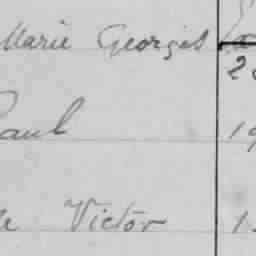 Marie Georges
2
Paul 19
Victor 1